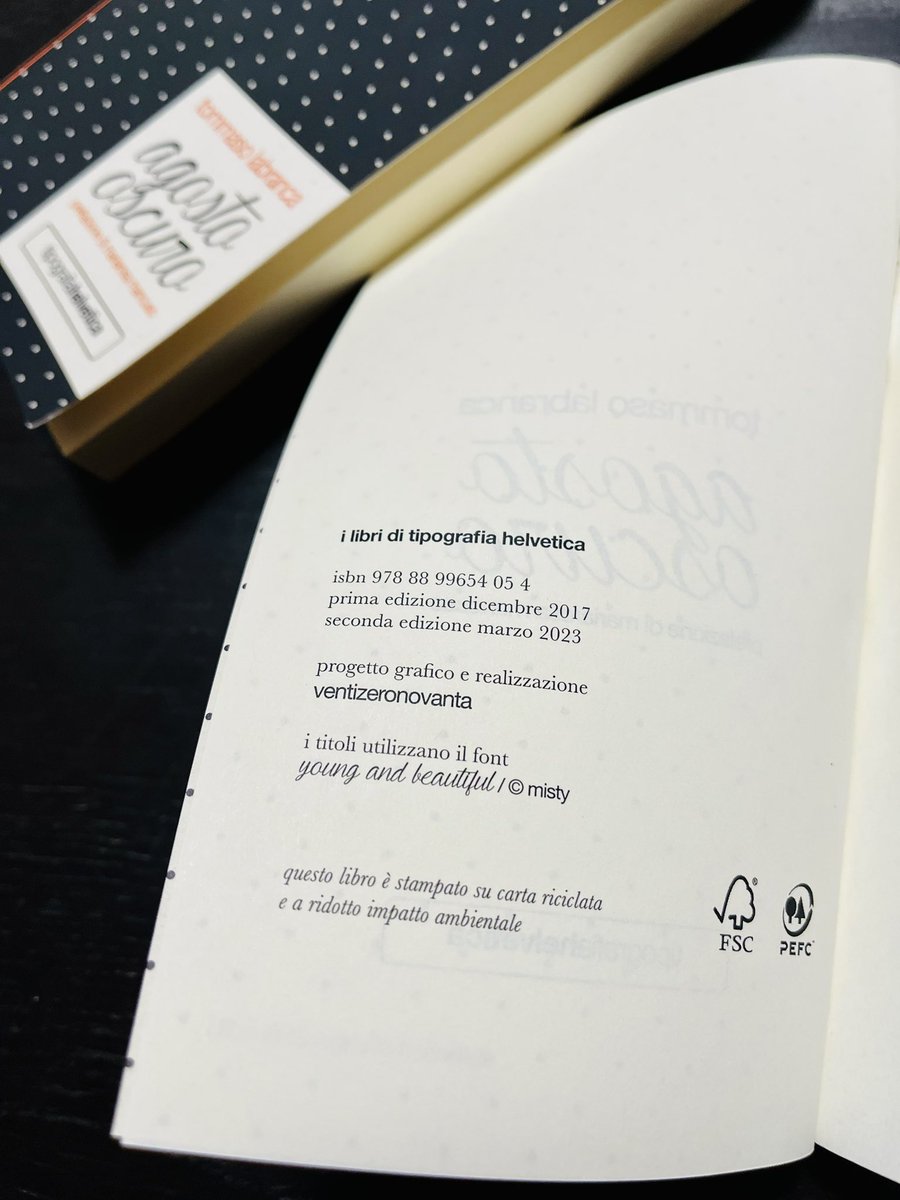 tommaso labranca
agosto
oscuro
tipografiahelvetica
tommaso labranca
agosto
oscuro
i libri di tipografia helvetica
isbn 978 88 99654 05 4
prima edizione dicembre 2017
seconda edizione marzo 2023
progetto grafico e realizzazione
ventizeronovanta
i titoli utilizzano il font
young and beautiful / © misty
questo libro è stampato su carta riciclata
e a ridotto impatto ambientale
FSC
PEFC